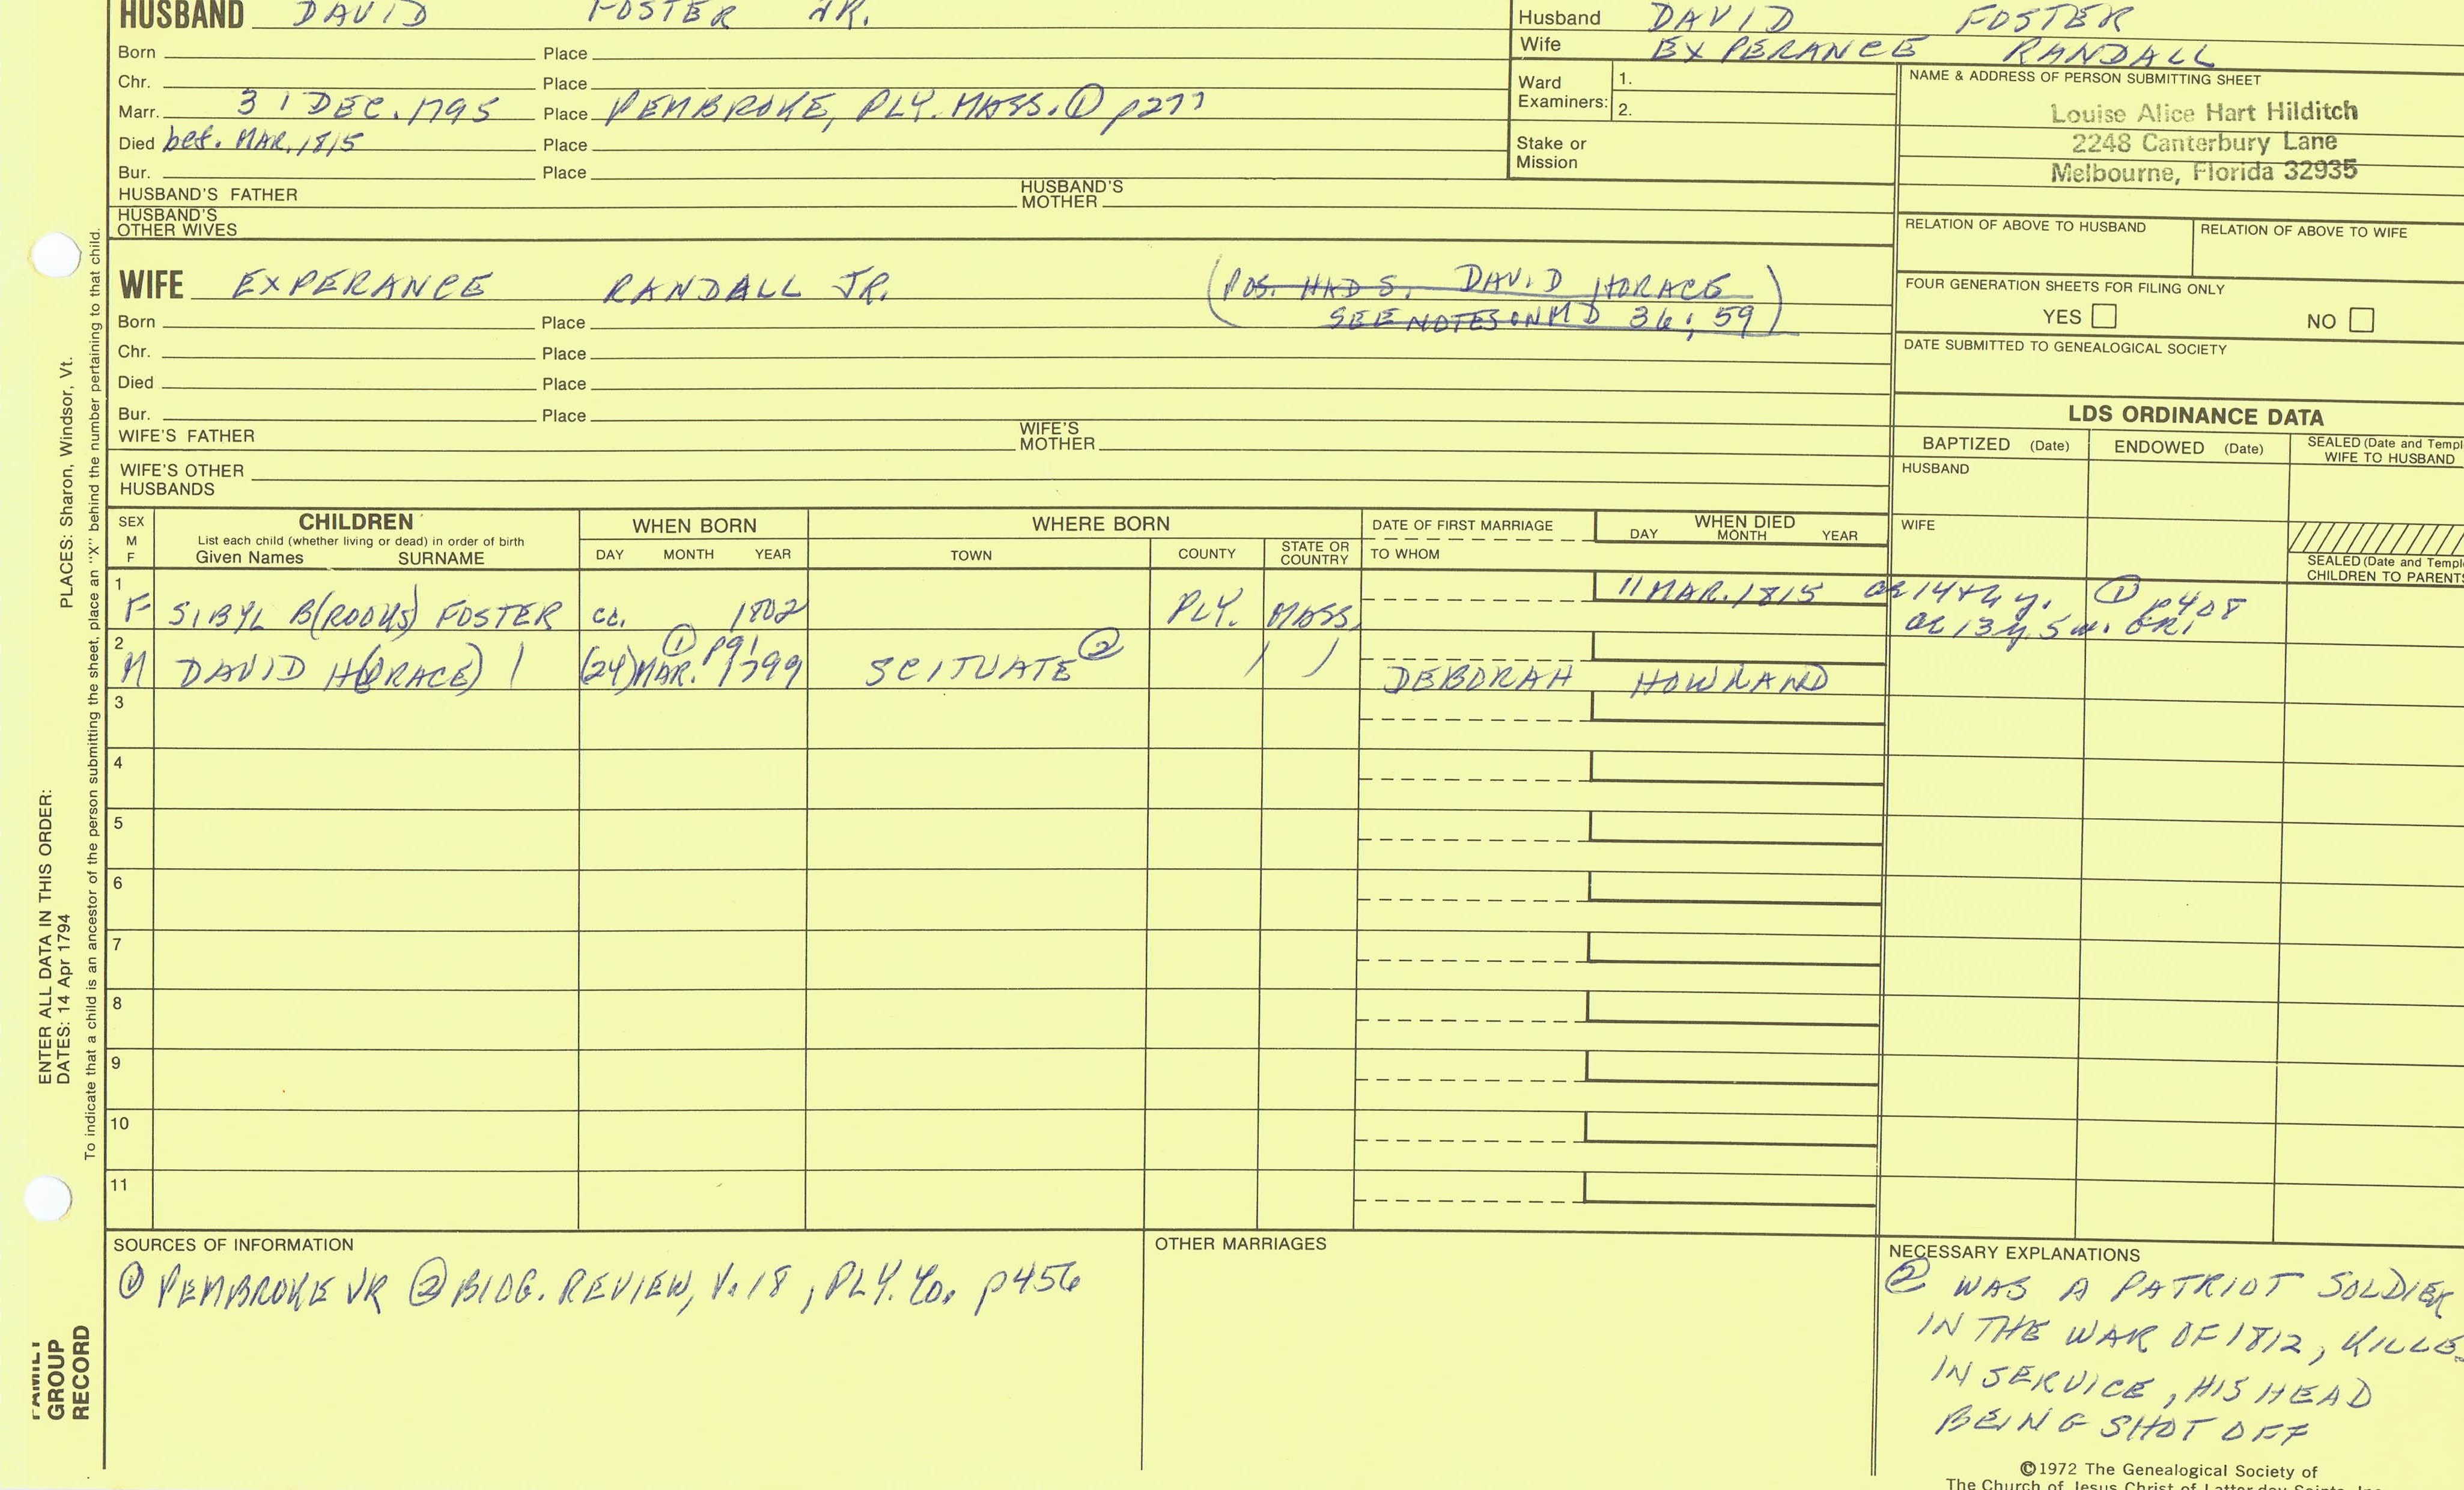 HUSBAND DAVID FOSTER JR.
Born Place
Chr. Place
Marr. 31 DEC. 1795 Place PEMBROKE, PLY. MASS. ① p277
Died bef. MAR. 1815 Place
Bur. Place
HUSBAND'S FATHER HUSBAND'S MOTHER
HUSBAND'S OTHER WIVES
Husband DAVID FOSTER
Wife EXPERANCE RANDALL
Ward Examiners: 1.
2.
Stake or Mission
NAME & ADDRESS OF PERSON SUBMITTING SHEET
Louise Alice Hart Hilditch
2248 Canterbury Lane
Melbourne, Florida 32935
RELATION OF ABOVE TO HUSBAND RELATION OF ABOVE TO WIFE
FOUR GENERATION SHEETS FOR FILING ONLY
YES NO
DATE SUBMITTED TO GENEALOGICAL SOCIETY
WIFE EXPERANCE RANDALL JR. (POS. HAD S. DAVID HORACE
SEE NOTES ON MD 36; 59)
Born Place
Chr. Place
Died Place
Bur. Place
WIFE'S FATHER WIFE'S MOTHER
WIFE'S OTHER HUSBANDS
LDS ORDINANCE DATA
BAPTIZED (Date) ENDOWED (Date) SEALED (Date and Templ
WIFE TO HUSBAND
HUSBAND
WIFE
SEALED (Date and Templ
CHILDREN TO PARENTS
SEX M F CHILDREN WHEN BORN WHERE BORN DATE OF FIRST MARRIAGE WHEN DIED
List each child (whether living or dead) in order of birth
Given Names SURNAME DAY MONTH YEAR TOWN COUNTY STATE OR COUNTRY TO WHOM DAY MONTH YEAR
1 F SIBYL B(ROOKS) FOSTER ca. 1802 PLY. MASS. 11 MAR. 1815 ae 14th y. ① p408
ae 13y 5 m.
2 M DAVID H(ORACE) (24) MAR. 1799 ① p91 SCITUATE ② DEBORAH HOWLAND
3
4
5
6
7
8
9
10
11
SOURCES OF INFORMATION
① PEMBROKE VR ② BIOG. REVIEW, V. 18, PLY. Co. p456
OTHER MARRIAGES
NECESSARY EXPLANATIONS
② WAS A PATRIOT SOLDIER
IN THE WAR OF 1812, KILLE
IN SERVICE, HIS HEAD
BEING SHOT OFF
©1972 The Genealogical Society of
The Church of Jesus Christ of Latter-day Saints, Inc
ENTER ALL DATA IN THIS ORDER:
DATES: 14 Apr 1794 PLACES: Sharon, Windsor, Vt.
To indicate that a child is an ancestor of the person submitting the sheet, place an "X" behind the number pertaining to that child.
FAMILY
GROUP
RECORD